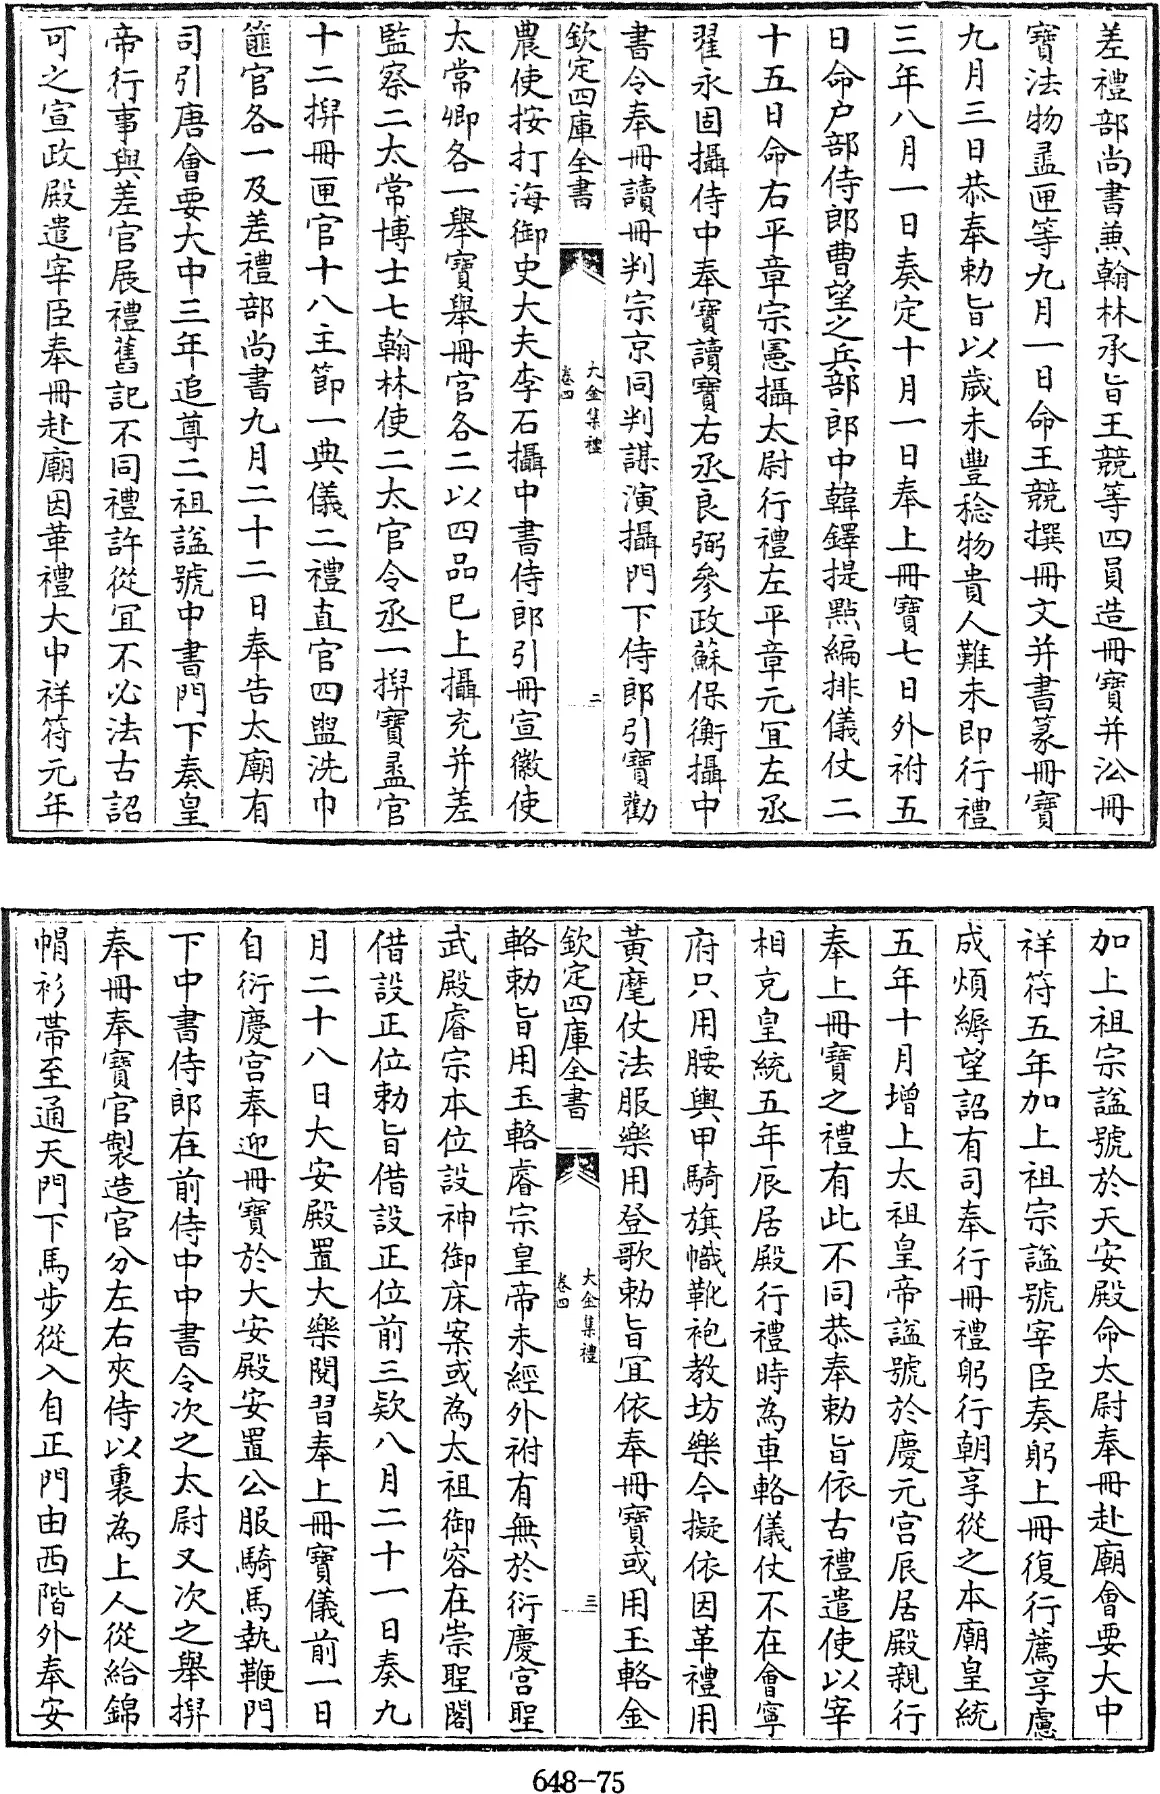 差禮部尚書兼翰林承旨王競等四員造冊寶并㳂冊
寶法物盝匣等九月一日命王競撰冊文并書篆冊寶
九月三日恭奉勅旨以歲未豐稔物貴人難未即行禮
三年八月一日奏定十月一日奉上冊寶七日外祔五
日命户部侍郎曹望之兵部郎中韓鐸提點編排儀仗二
十五日命右平章宗憲攝太尉行禮左平章元宜左丞
翟永固攝侍中奉寶讀寶右丞良弼參政蘇保衡攝中
書令奉冊讀冊判宗京同判謀演攝門下侍郎引寶勸
欽定四庫全書
大金集禮
卷四
二
農使按打海御史大夫李石攝中書侍郎引冊宣徽使
太常卿各一舉寶舉冊官各二以四品已上攝充并差
監察二太常博士七翰林使二太官令丞一㨽寶盝官
十二㨽冊匣官十八主節一典儀二禮直官四盥洗巾
篚官各一及差禮部尚書九月二十二日奉告太廟有
司引唐會要大中三年追尊二祖諡號中書門下奏皇
帝行事與差官展禮舊記不同禮許從宜不必法古詔
可之宣政殿遣宰臣奉冊赴廟因革禮大中祥符元年
加上祖宗諡號於天安殿命太尉奉冊赴廟會要大中
祥符五年加上祖宗諡號宰臣奏躬上冊復行薦享慮
成煩縟望詔有司奉行冊禮躬行朝享從之本廟皇統
五年十月增上太祖皇帝諡號於慶元宫辰居殿親行
奉上冊寶之禮有此不同恭奉勅旨依古禮遣使以宰
相充皇統五年辰居殿行禮時為車輅儀仗不在會寧
府只用腰輿甲騎旗幟靴袍教坊樂今擬依因革禮用
黃麾仗法服樂用登歌勅旨宜依奉冊寶或用玉輅金
欽定四庫全書
大金集禮
卷四
三
輅勅旨用玉輅睿宗皇帝未經外祔有無於衍慶宫聖
武殿睿宗本位設神御床案或為太祖御容在崇聖閣
借設正位勅旨借設正位前三欵八月二十一日奏九
月二十八日大安殿置大樂閱習奉上冊寶儀前一日
自衍慶宫奉迎冊寶於大安殿安置公服騎馬執鞭門
下中書侍郎在前侍中中書令次之太尉又次之舉㨽
奉冊奉寶官製造官分左右夾侍以裏為上人從給錦
帽衫帶至通天門下馬步從入自正門由西階外奉安
648-75